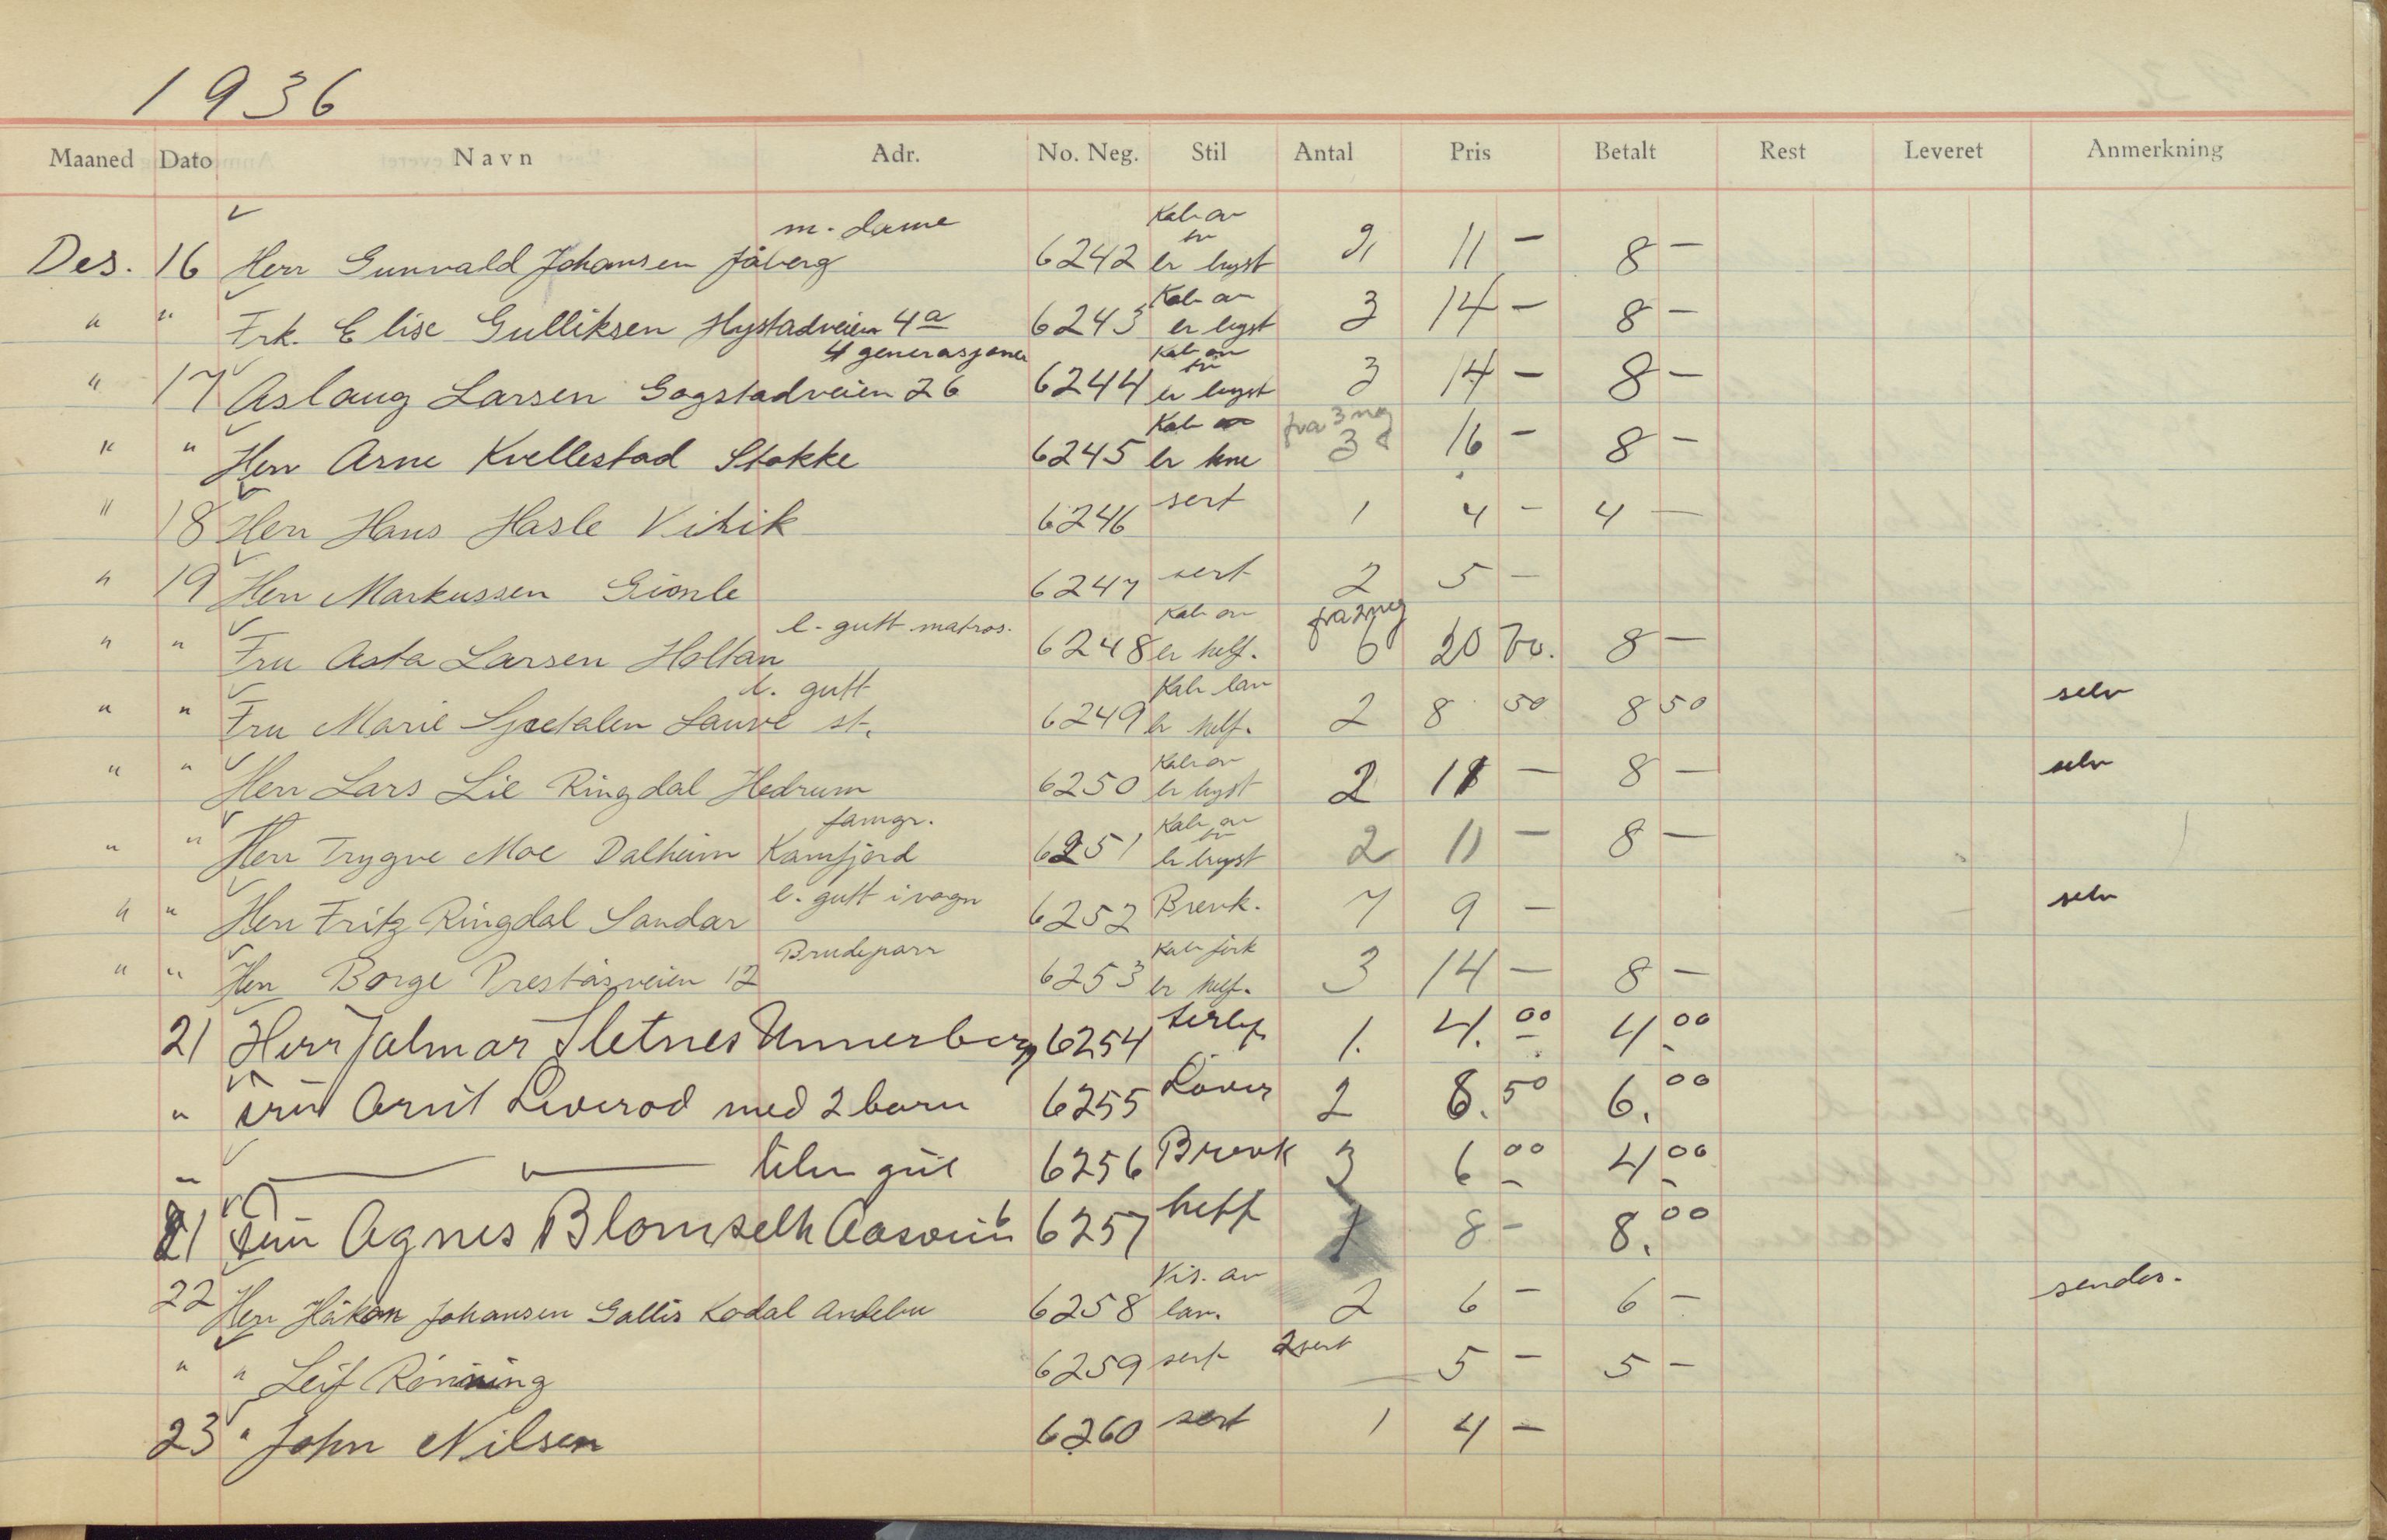 1936
Maaned Dato Navn Adr. No. Neg. Stil Antal Pris Betalt Rest Leveret Anmerkning
m. dame Kab av
Des. 16 Herr Gunvald Johansen Jåberg 6242 er bryst 2 11 — 8 —
Kab av
" " Frk. Elise Gulliksen Hystadveien 4a 6243 er bryst 3 14 — 8 —
4 generasjoner Kab av
" 17 Aslaug Larsen Gogstadveien 26 6244 er bryst 3 14 — 8 —
Kab fra 3 neg
" " Herr Arne Kvellestad Stokke 6245 er kne 3 16 — 8 —
" 18 Herr Hans Hasle Vitik 6246 sert 1 4 — 4 —
" 19 Herr Markussen Gionle 6247 sert 2 5 —
l. gutt matros. Kab av fra 2 neg
" " Fru Asta Larsen Holtan 6248 er helf. 6 20 8 —
l. gutt Kab lav
" " Fru Marie Sjetalen Lauve st. 6249 er helf. 2 8 50 8 50 selv
Kab av
" " Herr Lars Lie Ringdal Hedrum 6250 er bryst 2 11 — 8 — selv
famgr. Kab av
" " Herr Trygve Moe Dalheim Kamfjord 6251 er bryst 2 11 — 8 —
l. gutt i vogn
" " Herr Fritz Ringdal Sandar 6252 Brevk. 7 9 — selv
Brudepar Kab
" " Herr Borge Preståsveien 12 6253 er helf. 3 14 — 8 —
21 Herr Jalmar Sletnes Unnerberg 6254 1. 4.00 4.00
" Arnt Liverod med 2 barn 6255 2 8.50 6.00
" — " — 6256 Brevk 3 6 00 4.00
21 Agnes Blomselh 6257 helf 1 8 — 8.00
Vis. av
22 Herr Håkon Johansen Gallis Kodal Andebu 6258 lav. 2 6 — 6 — sendes.
" " Leif Rönning 6259 sert 2 sert 5 — 5 —
23 " John Nilsen 6260 sert 1 4 —